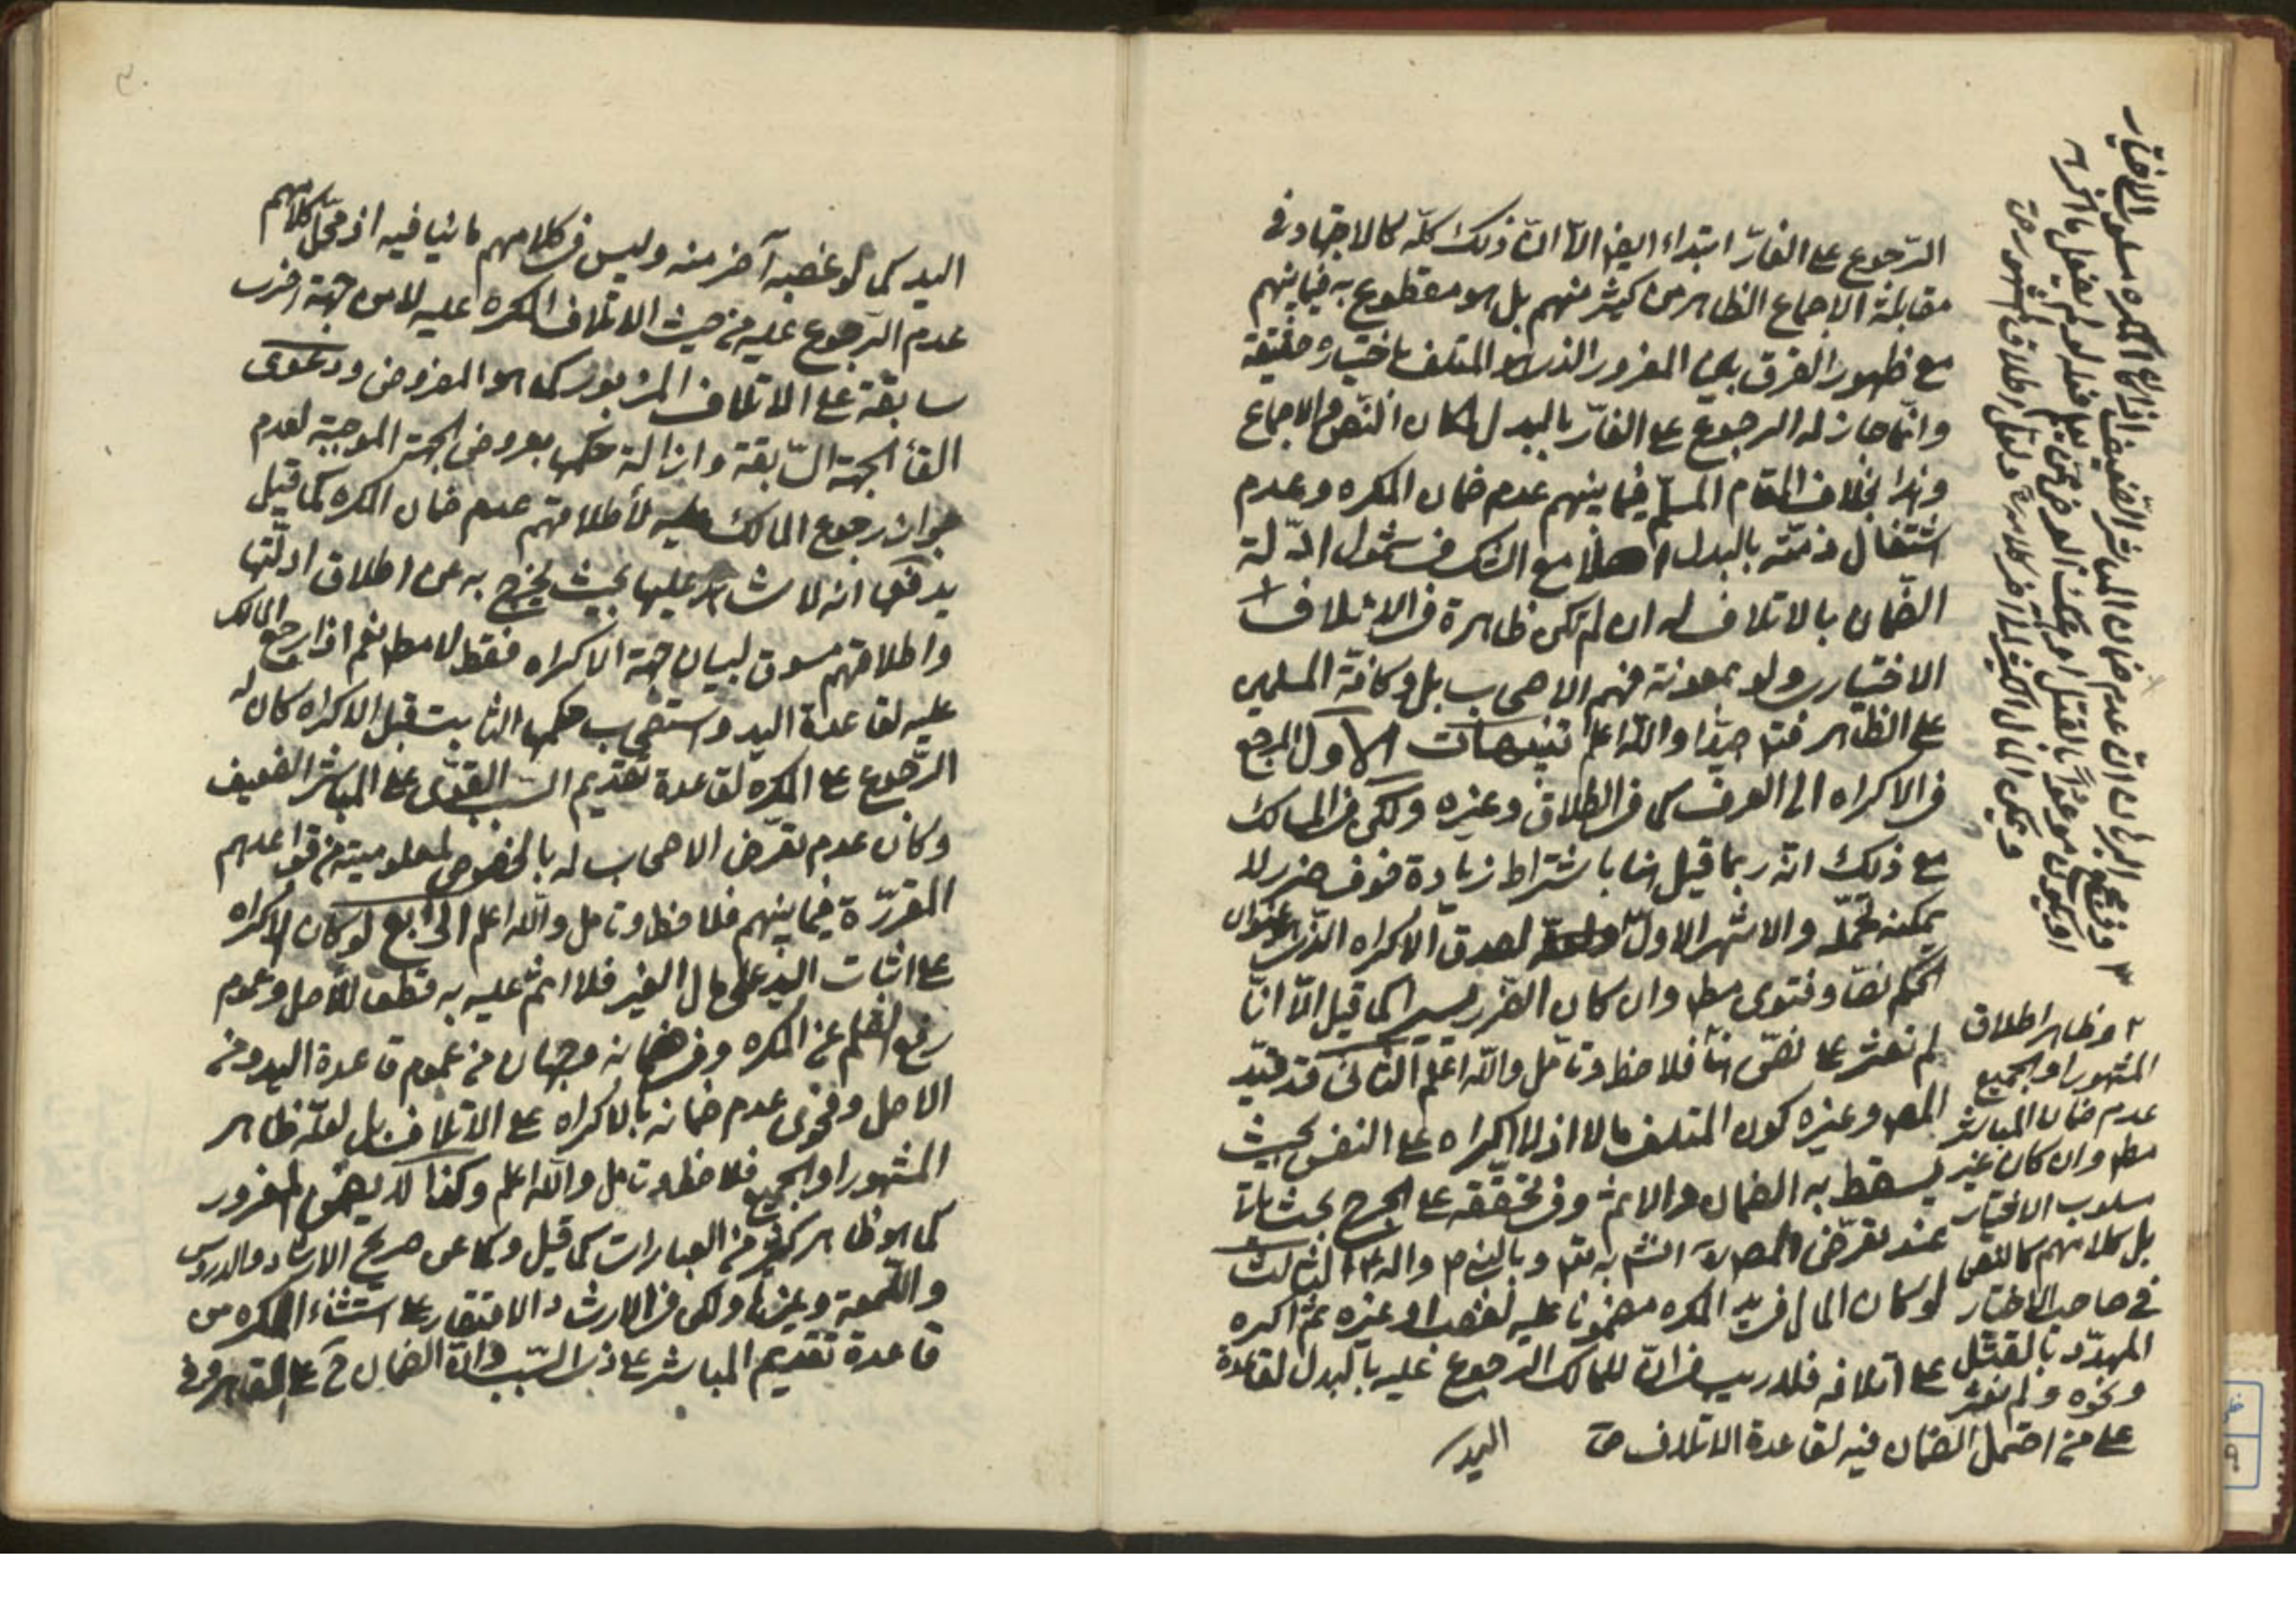 الرّجوع على الغارّ ابتداء ايضا الّا انّ ذلك كلّه كالاجتهاد في
مقابلة الاجماع الظاهر من كثير منهم بل هو مقطوع به فيما بينهم
مع ظهور الفرق بين المغرور الذى هو المتلف باختياره حقيقة
وانّما جاز له الرجوع على الغارّ بالبدل لمكان النّص والاجماع
وهذا بخلاف المقام المسلّم فيما بينهم عدم ضمان المكره وعدم
اشتغال ذمّته بالبدل اصلا مع الشك في شمول ادلّة
الضّمان بالاتلاف له ان لم تكن ظاهرة في الاتلاف
الاختيارى ولو بمعونة فهم الاصحاب بل وكافّة المسلمين
على الظاهر فتدبر جيّدا والله اعلم تنبيهات الاول المرجع
في الاكراه الى العرف كما في الطلاق وغيره ولكن في المسالك
مع ذلك انّه ربما قيل هنا باشتراط زيادة خوف ضرر لا
يمكنه تحمّله والاشهر الاوّل لصدق الاكراه الذى هو عنوان
الحكم نصّا وفتوى مط وان كان الضّرر يسيرا كما قيل الّا انّا
لم نعثر على نصّ هنا فلاحظ وتأمّل والله اعلم الثاني قد قيّد
المص وغيره كون المتلف مالا اذ لا اكراه على النفس بحيث
يسقط به الضمان والاثم وفي تحقّقه على الجرح بحث يأتي
عند تعرّض المص له انش به تع وبالنبي ص واله ع الثالث
لو كان المال في يد المكره مضمونا عليه لغصب او غيره ثم اكره
على اتلافه فلا ريب في انّ للمالك الرجوع عليه بالبدل لقاعدة
اليد
٢ وظاهر اطلاق
المشهور او الجميع
عدم ضمان المباشر
مط وان كان غير
مسلوب الاختيار
بل كلامهم كالنص
في صاحب الاختيار
المهدّد بالقتل
ونحوه ولم نعثر
على من احتمل الضمان فيه لقاعدة الاتلاف
اليد كما لو غصبه آخر منه وليس في كلامهم ما ينافيه اذ محلّ كلامهم
عدم الرّجوع عليه من حيث الاتلاف المكره عليه لا من جهة اخرى
سابقة على الاتلاف المزبور كما هو المفروض ودعوى
الغاء الجهة السّابقة وازالة حكمها بعروض الجهة الموجبة لعدم
جواز رجوع المالك عليه لأطلاقهم عدم ضمان المكره كما قيل
يدفعها انه لا شاهد عليها بحيث يخرج به عن اطلاق ادلّتها
واطلاقهم مسوق لبيان جهة الاكراه فقط لا مط نعم اذا رجع المالك
عليه لقاعدة اليد واستصحاب حكمها الثابت قبل الاكراه كان له
الرّجوع على المكره لقاعدة تقديم السبب القوّى على المباشر الضعيف
وكان عدم تعرّض الاصحاب له بالخصوص لمعلوميته من قواعدهم
المقرّرة فيما بينهم فلاحظ وتأمل والله اعلم الرابع لو كان الاكراه
على اثبات اليد على مال الغير فلا اثم عليه به قطعا للأصل وعموم
رفع القلم عن المكره وفي ضمانه وجهان من عموم قاعدة اليد ومن
الاصل وفحوى عدم ضمانه بالاكراه على الاتلاف بل لعلّه ظاهر
المشهور او الجميع فلاحظ وتأمل والله اعلم وكذا لا يضمن المغرور
كما هو ظاهر كثير من العبارات كما قيل وكما عن صريح الارشاد والدروس
واللّمعة وغيرها ولكن في الارشاد الاقتصار على استثناء المكره من
قاعدة تقديم المباشر على ذى السّبب وانّ الضمان ح على القاهر وفي